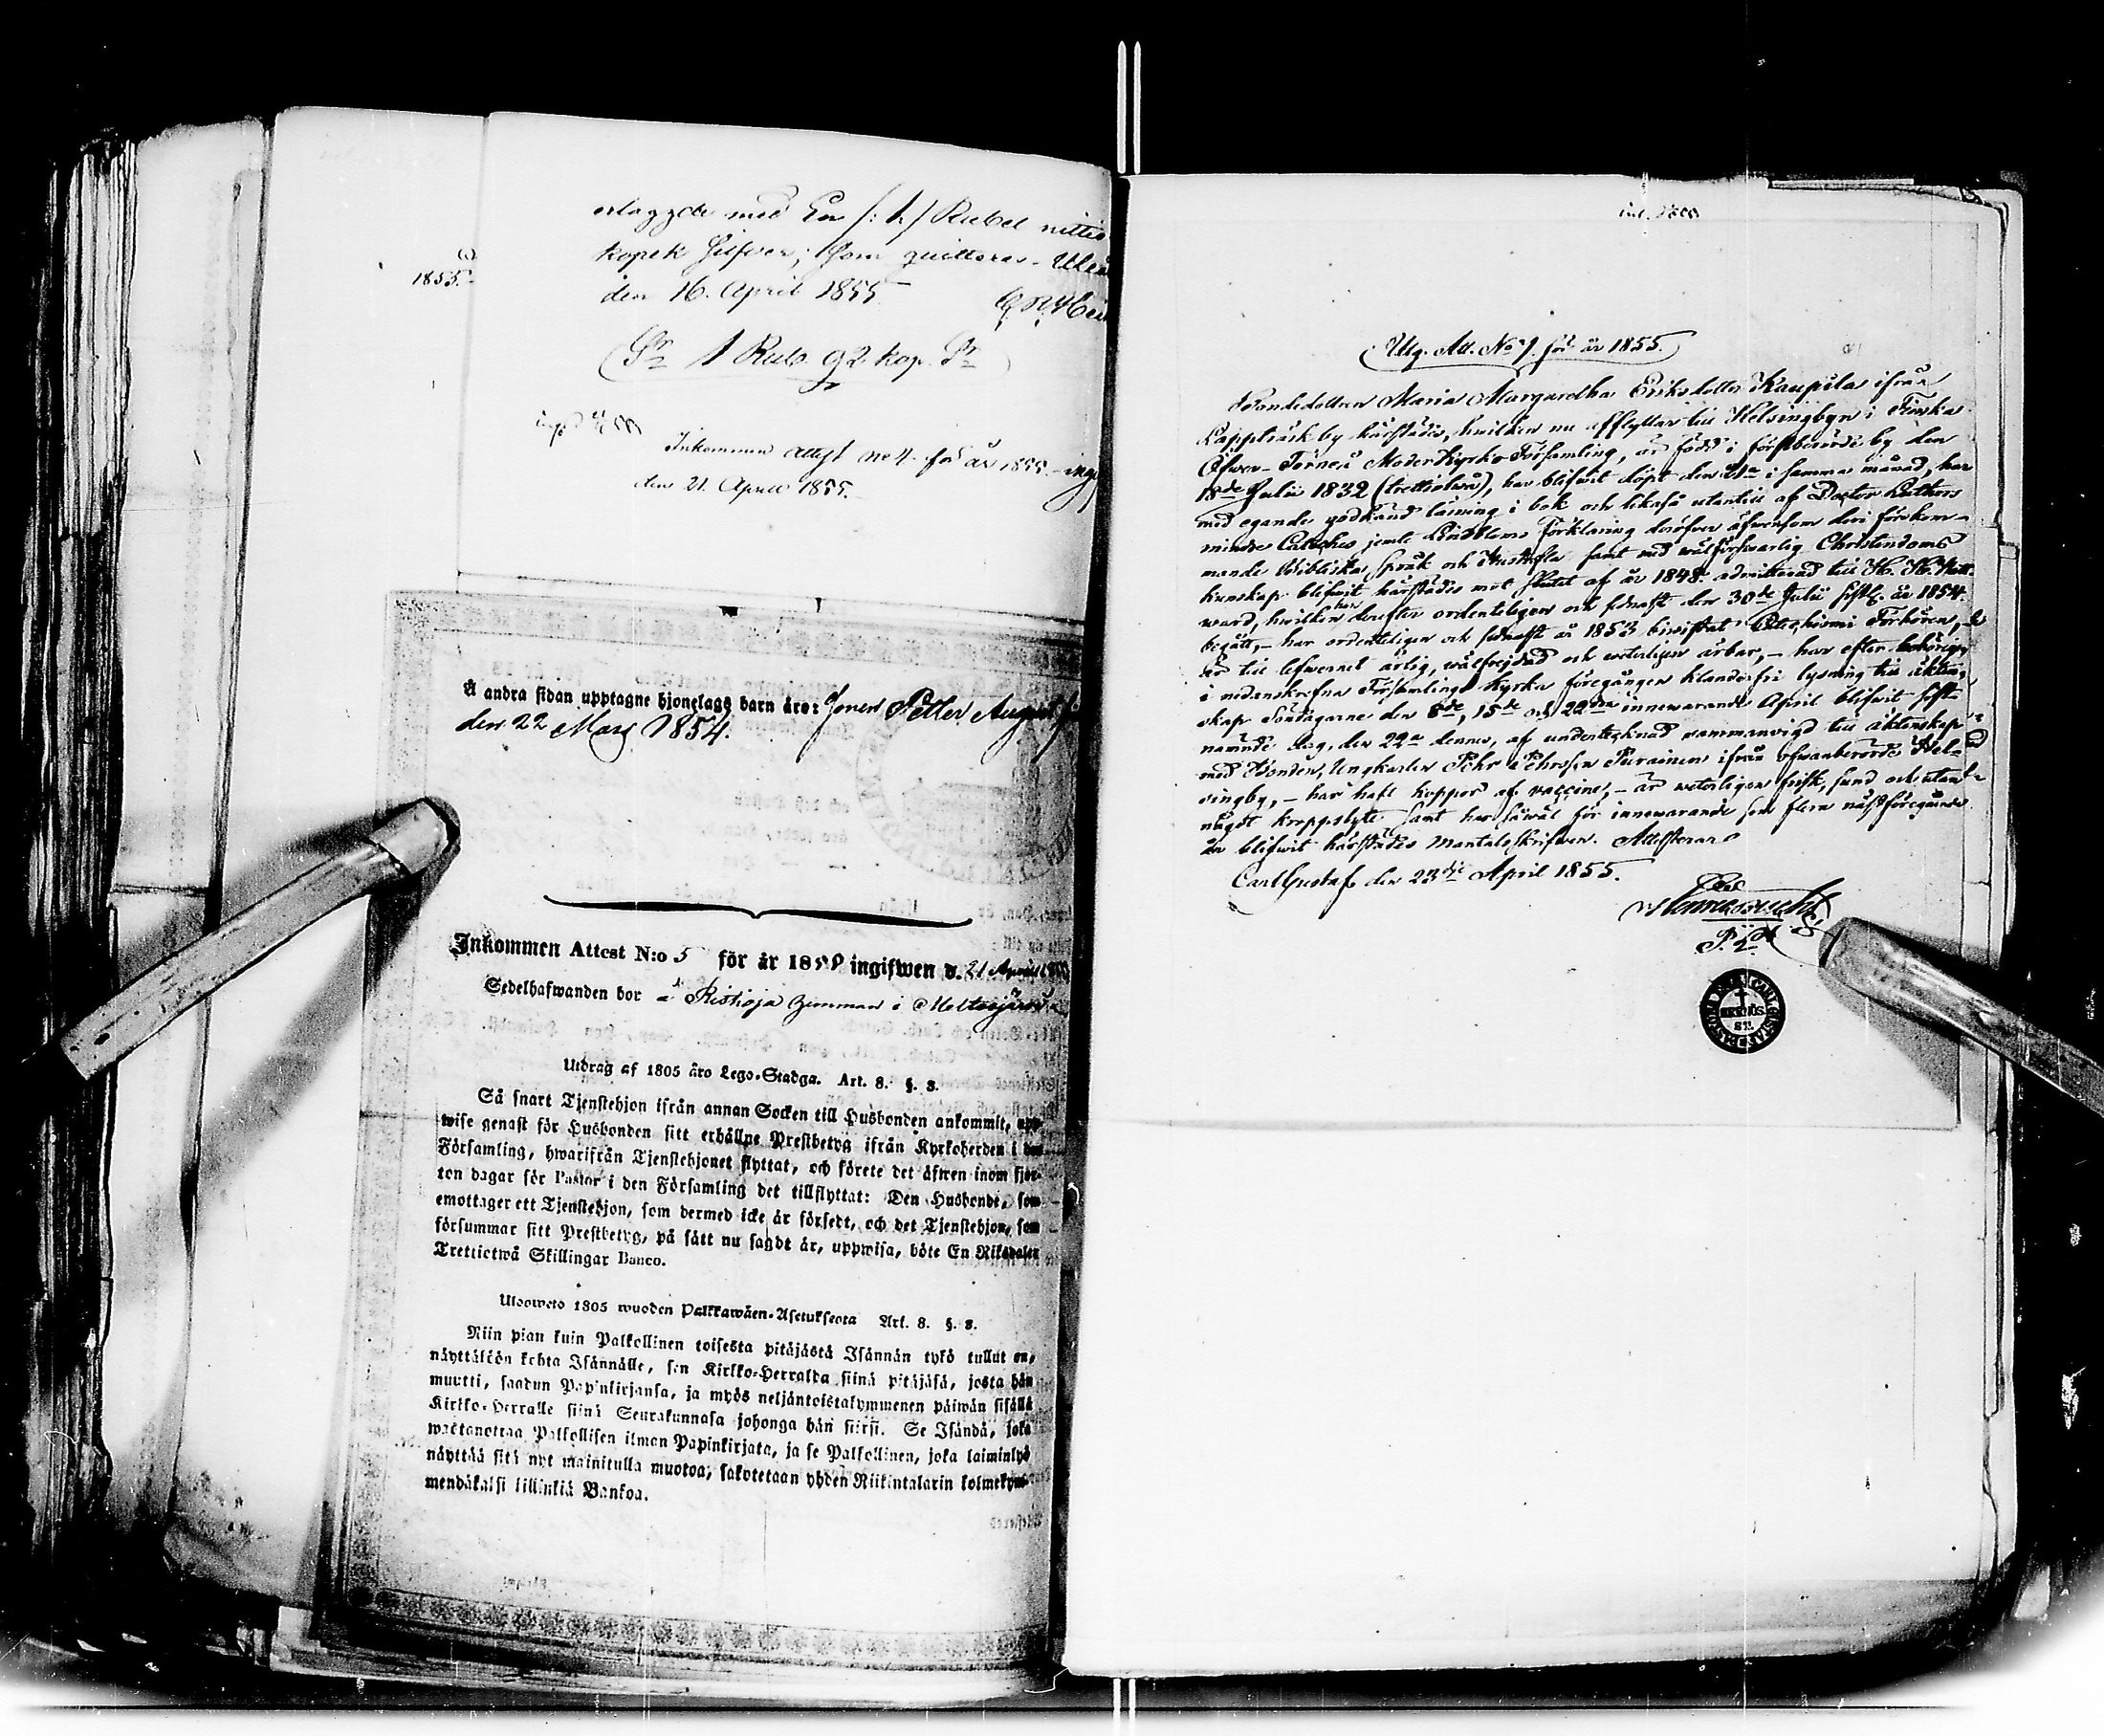 erlaggde med En /: 1 / Rubel nittio
kopek Silfver; Som quitteras. Uleå
1855.
den 16. April 1855
(Sr 1 Rub. 92 kop. Sr)
Inkommen attest No 4. för år 1855. ing
den 21. April 1855.
Å andra sidan upptagne hjonelags barn äro: Petter August
den 22 Mars 1854.
Inkommen Attest N:o 5 för år 1855 ingifwen d. 21 April
Sedelhafwanden bor å Ristioja hemman i Meltosjärvi
Utdrag af 1805 åro Lego-Stadga. Art. 8. §. 8.
Så snart Tjenstehjon ifrån annan Socken till Husbonden ankommit, upp-
wise genast för Husbonden sitt erhållne Prestbetyg ifrån Kyrkoherden i den
Församling, hwarifrån Tjenstehjonet flyttat, och förete det äfwen inom fjor-
ton dagar för Pastor i den Församling det tillflyttat: Den Husbonde, som
emottager ett Tjenstehjon, som dermed icke är försedt, och det Tjenstehjon, som
försummar sitt Prestbetyg, på sätt nu sagdt är, uppwisa, böte En Riksdaler
Trettiotwå Skillingar Banco.
Ulosweto 1805 wuoden Palkkawäen-Asetuksesta Art. 8. §. 8.
Niin pian kuin Palkollinen toisesta pitäjästä Isännän tykö tullut on,
näyttäköön kohta Isännälle, sen Kirkko-Herralda siinä pitäjäsä, josta hän
muutti, saadun Papinkirjansa, ja myös neljäntoistakymmenen päiwän sisällä
Kirkko-Herralle siinä Seurakunnasa johonga hän siirsi. Se Isändä, joka
wastanottaa Palkollisen ilman Papinkirjata, ja se Palkollinen, joka laiminlyö
näyttää sitä nyt mainitulla muotoa, sakotetaan yhden Riikintalarin kolmekym-
mendäkaksi killinkiä Bankoa.
Utg. Att. No 7. för år 1855.
Bondedottren Maria Margaretha Eriksdotter Kaupila ifrån
Kappträsk by härstädes, hwilken nu afflyttar till Helsingbyn i Finska
Öfwer-Torneå Moderkyrko-Församling, är född i förstberörde by den
18de Julii 1832 (trettiotwå), har blifwit döpt den 21a i samma månad, har
med egande godkänd läsning i bok och likaså utantill af Doctor Luthers
mindre Catechес jemte Lindbloms Förklaring deröfver äfwensom deri förekom-
mande Bibliska Språk och Hustafla samt med wälförswarlig Christendoms
kunskap blifwit härstädes mot slutet af år 1848 admitterad till H. H. Natt-
ward, hwilken har derefter ordenteligen och sednast den 30de Julii sistl. år 1854.
begått, - har ordenteligen och sednast år 1853 biwistat Catechismi Förhören,
är till lefwernet ärlig, wälfrejdad och weterligen ärbar, - har efter behörig
i nedanskrefne Församlings kyrka föregången klanderfri lysning till äkten-
skap Söndagarne den 8de, 15de och 22dra innewarande April blifwit sist-
nämnde dag, den 22a dennes, af undertecknad sammanvigd till äktenskap
med Bonden, Ungkarlen Pehr Pehrsson Purainen ifrån ofwanberörde Hel-
singby, - har haft koppor af vaccine, - är weterligen frisk, sund och utan
något kroppslyte samt har såwäl för innewarande som flere nästföregående
år blifwit härstädes mantalsskrifwen. Attesterar
Carl Gustaf den 23dje April 1855.